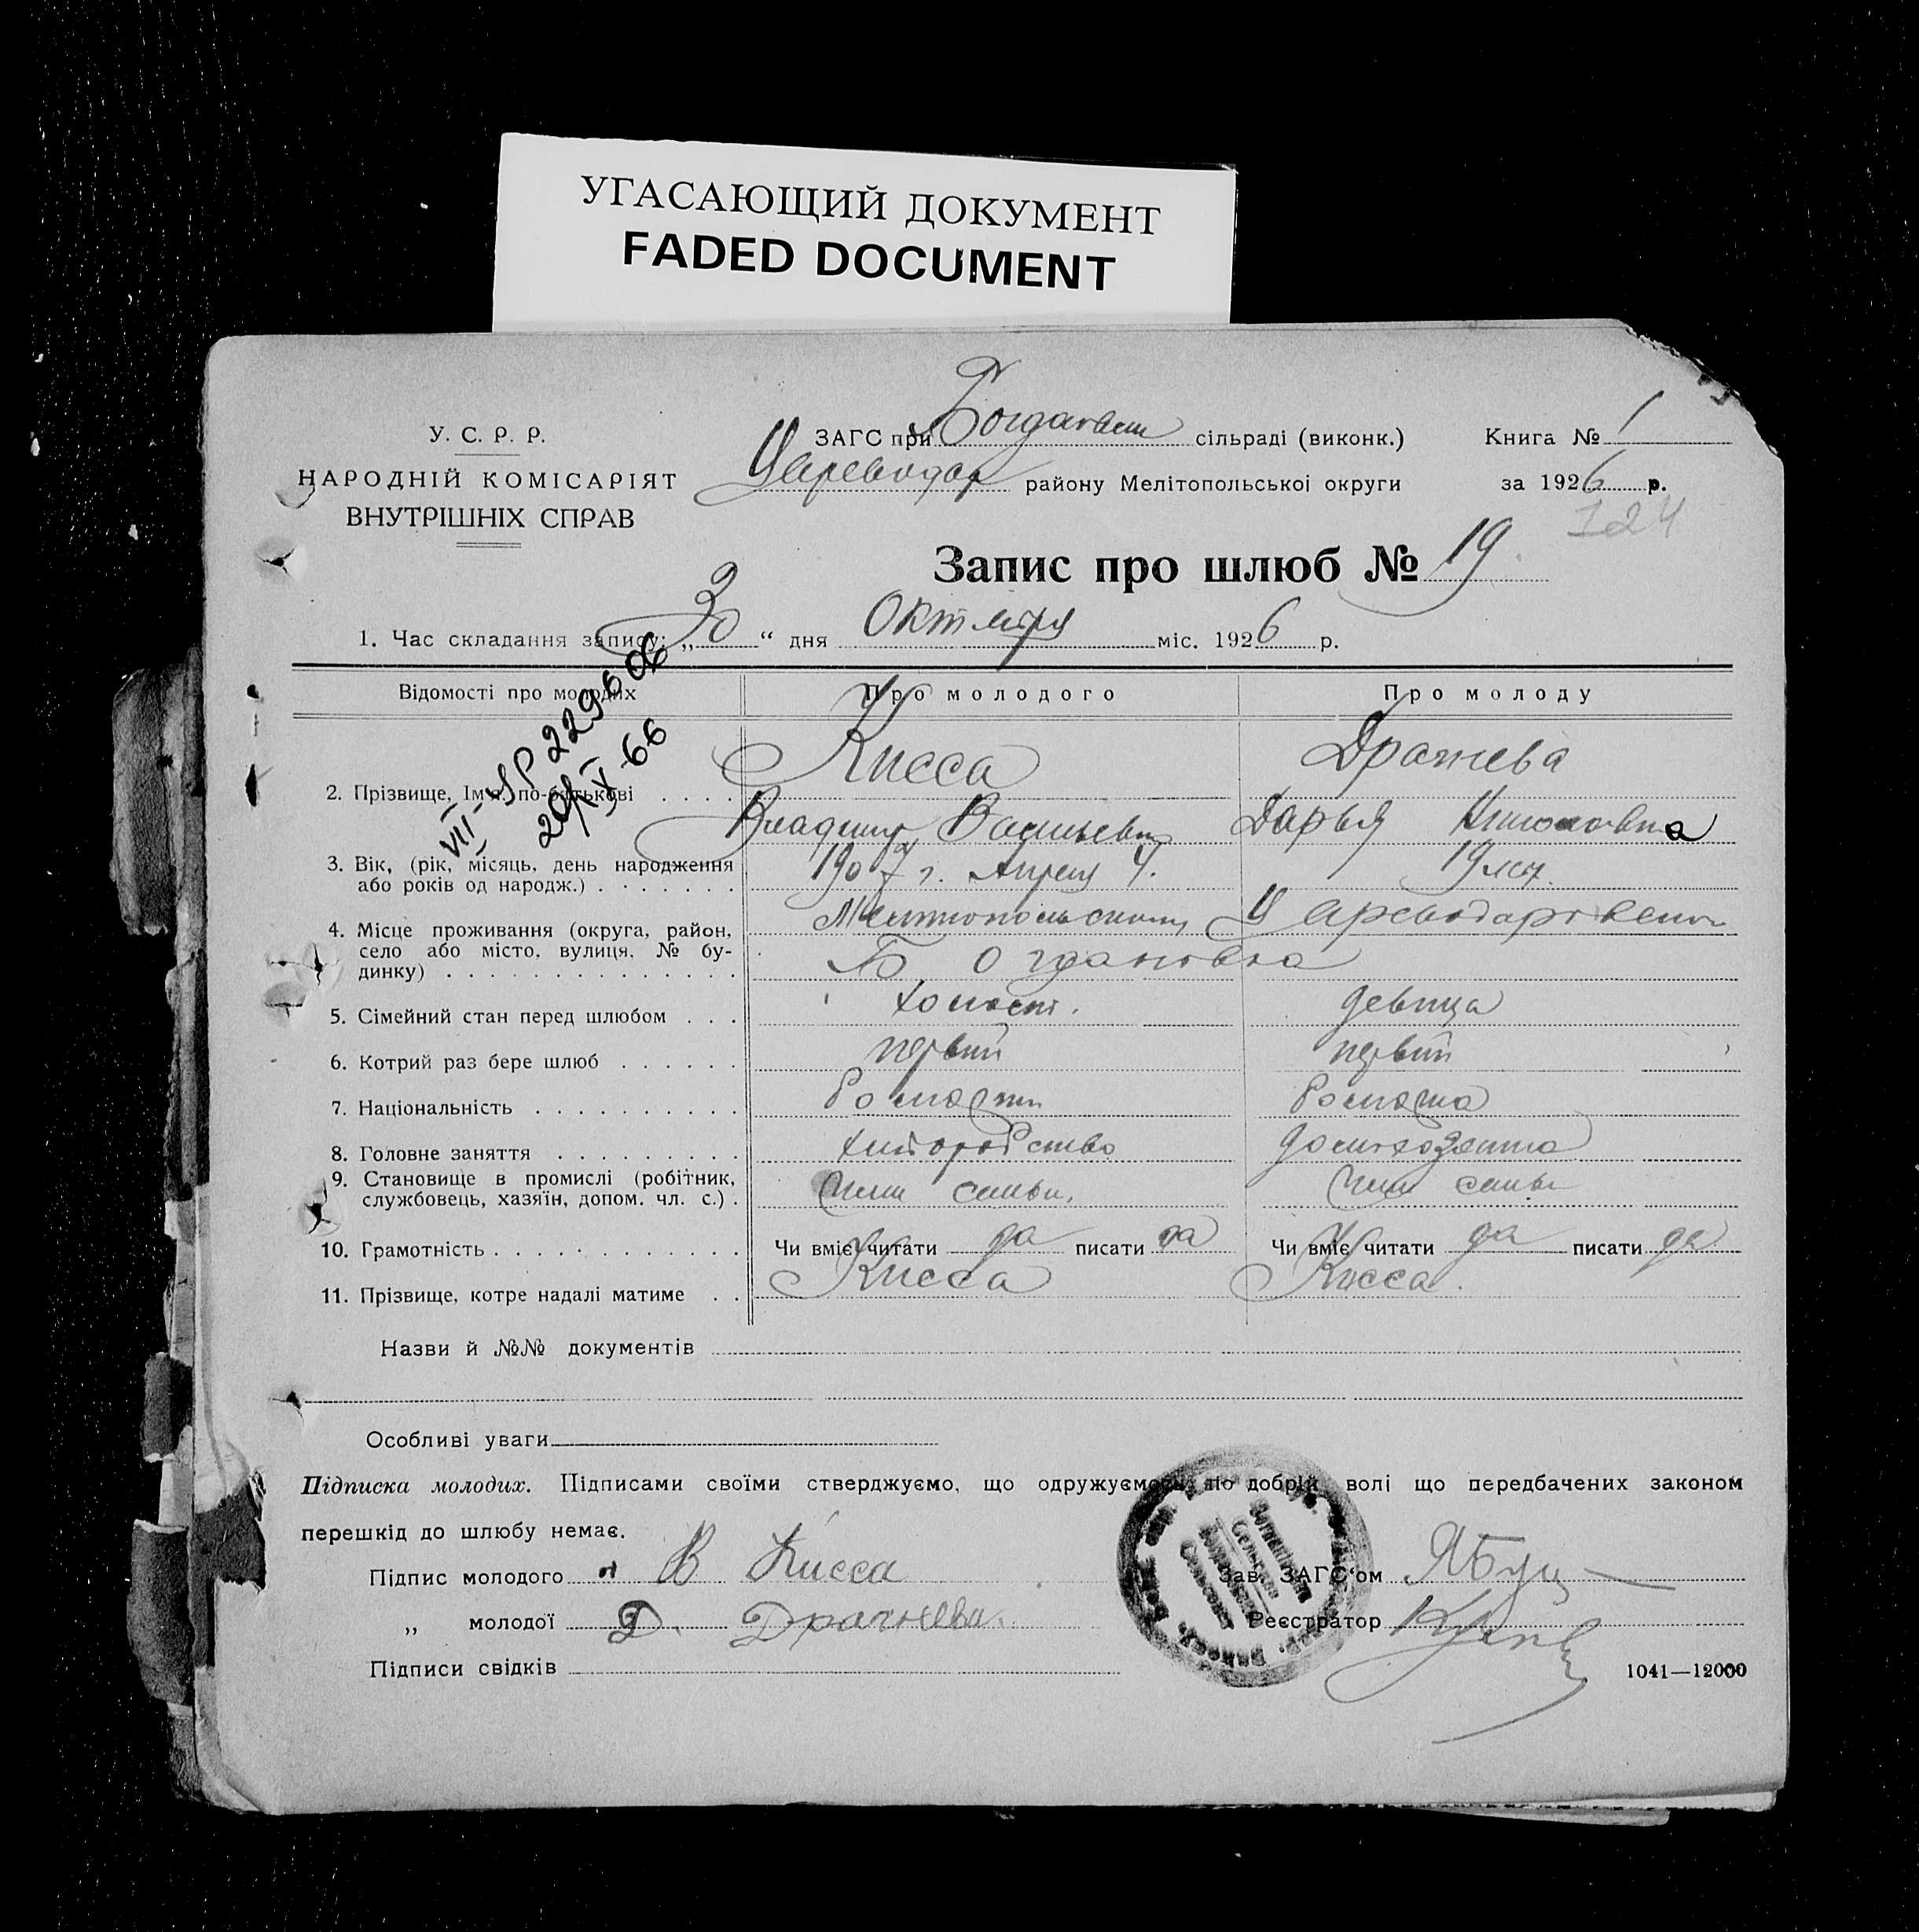 УГАСАЮЩИЙ ДОКУМЕНТ
FADED DOCUMENT
У. С. Р. Р.
НАРОДНІЙ КОМІСАРІЯТ
ВНУТРІШНІХ СПРАВ
ЗАГС при Богданвск сільраді (виконк.)
Цареводар району Мелітопольської округи
Книга № 1
за 1926 р.
124
Запис про шлюб № 19
1. Час складання запису: „30“ дня Октября міс. 1926 р.
Відомості про молодих
Про молодого
Про молоду
VIII-ЯР 229606
66
2. Прізвище, Ім'я, по-батькові
Кисса
Владимир Васильевич
Драгнева
Дарья Николовна
3. Вік, (рік, місяць, день народження або років од народж.)
1907 г. Апреля 4.
19 лет.
4. Місце проживання (округа, район, село або місто, вулиця, № будинку)
Мелитопольский Цареводаровский
Богдановка
5. Сімейний стан перед шлюбом
холост.
девица
6. Котрий раз бере шлюб
первий
первий
7. Національність
8. Головне заняття
хлиборобство
домохозяйка
9. Становище в промислі (робітник, службовець, хазяїн, допом. чл. с.)
Член семьи.
Член семьи
10. Грамотність
Чи вміє читати да писати да
Чи вміє читати да писати да
11. Прізвище, котре надалі матиме
Кисса
Кисса.
Назви й №№ документів
Особливі уваги
Підписка молодих. Підписами своїми стверджуємо, що одружуємось по добрій волі що передбачених законом
перешкід до шлюбу немає.
Підпис молодого В Кисса
„ молодої Д. Драгнева
Підписи свідків
Зав. ЗАГС'ом
Реєстратор
1041—12000